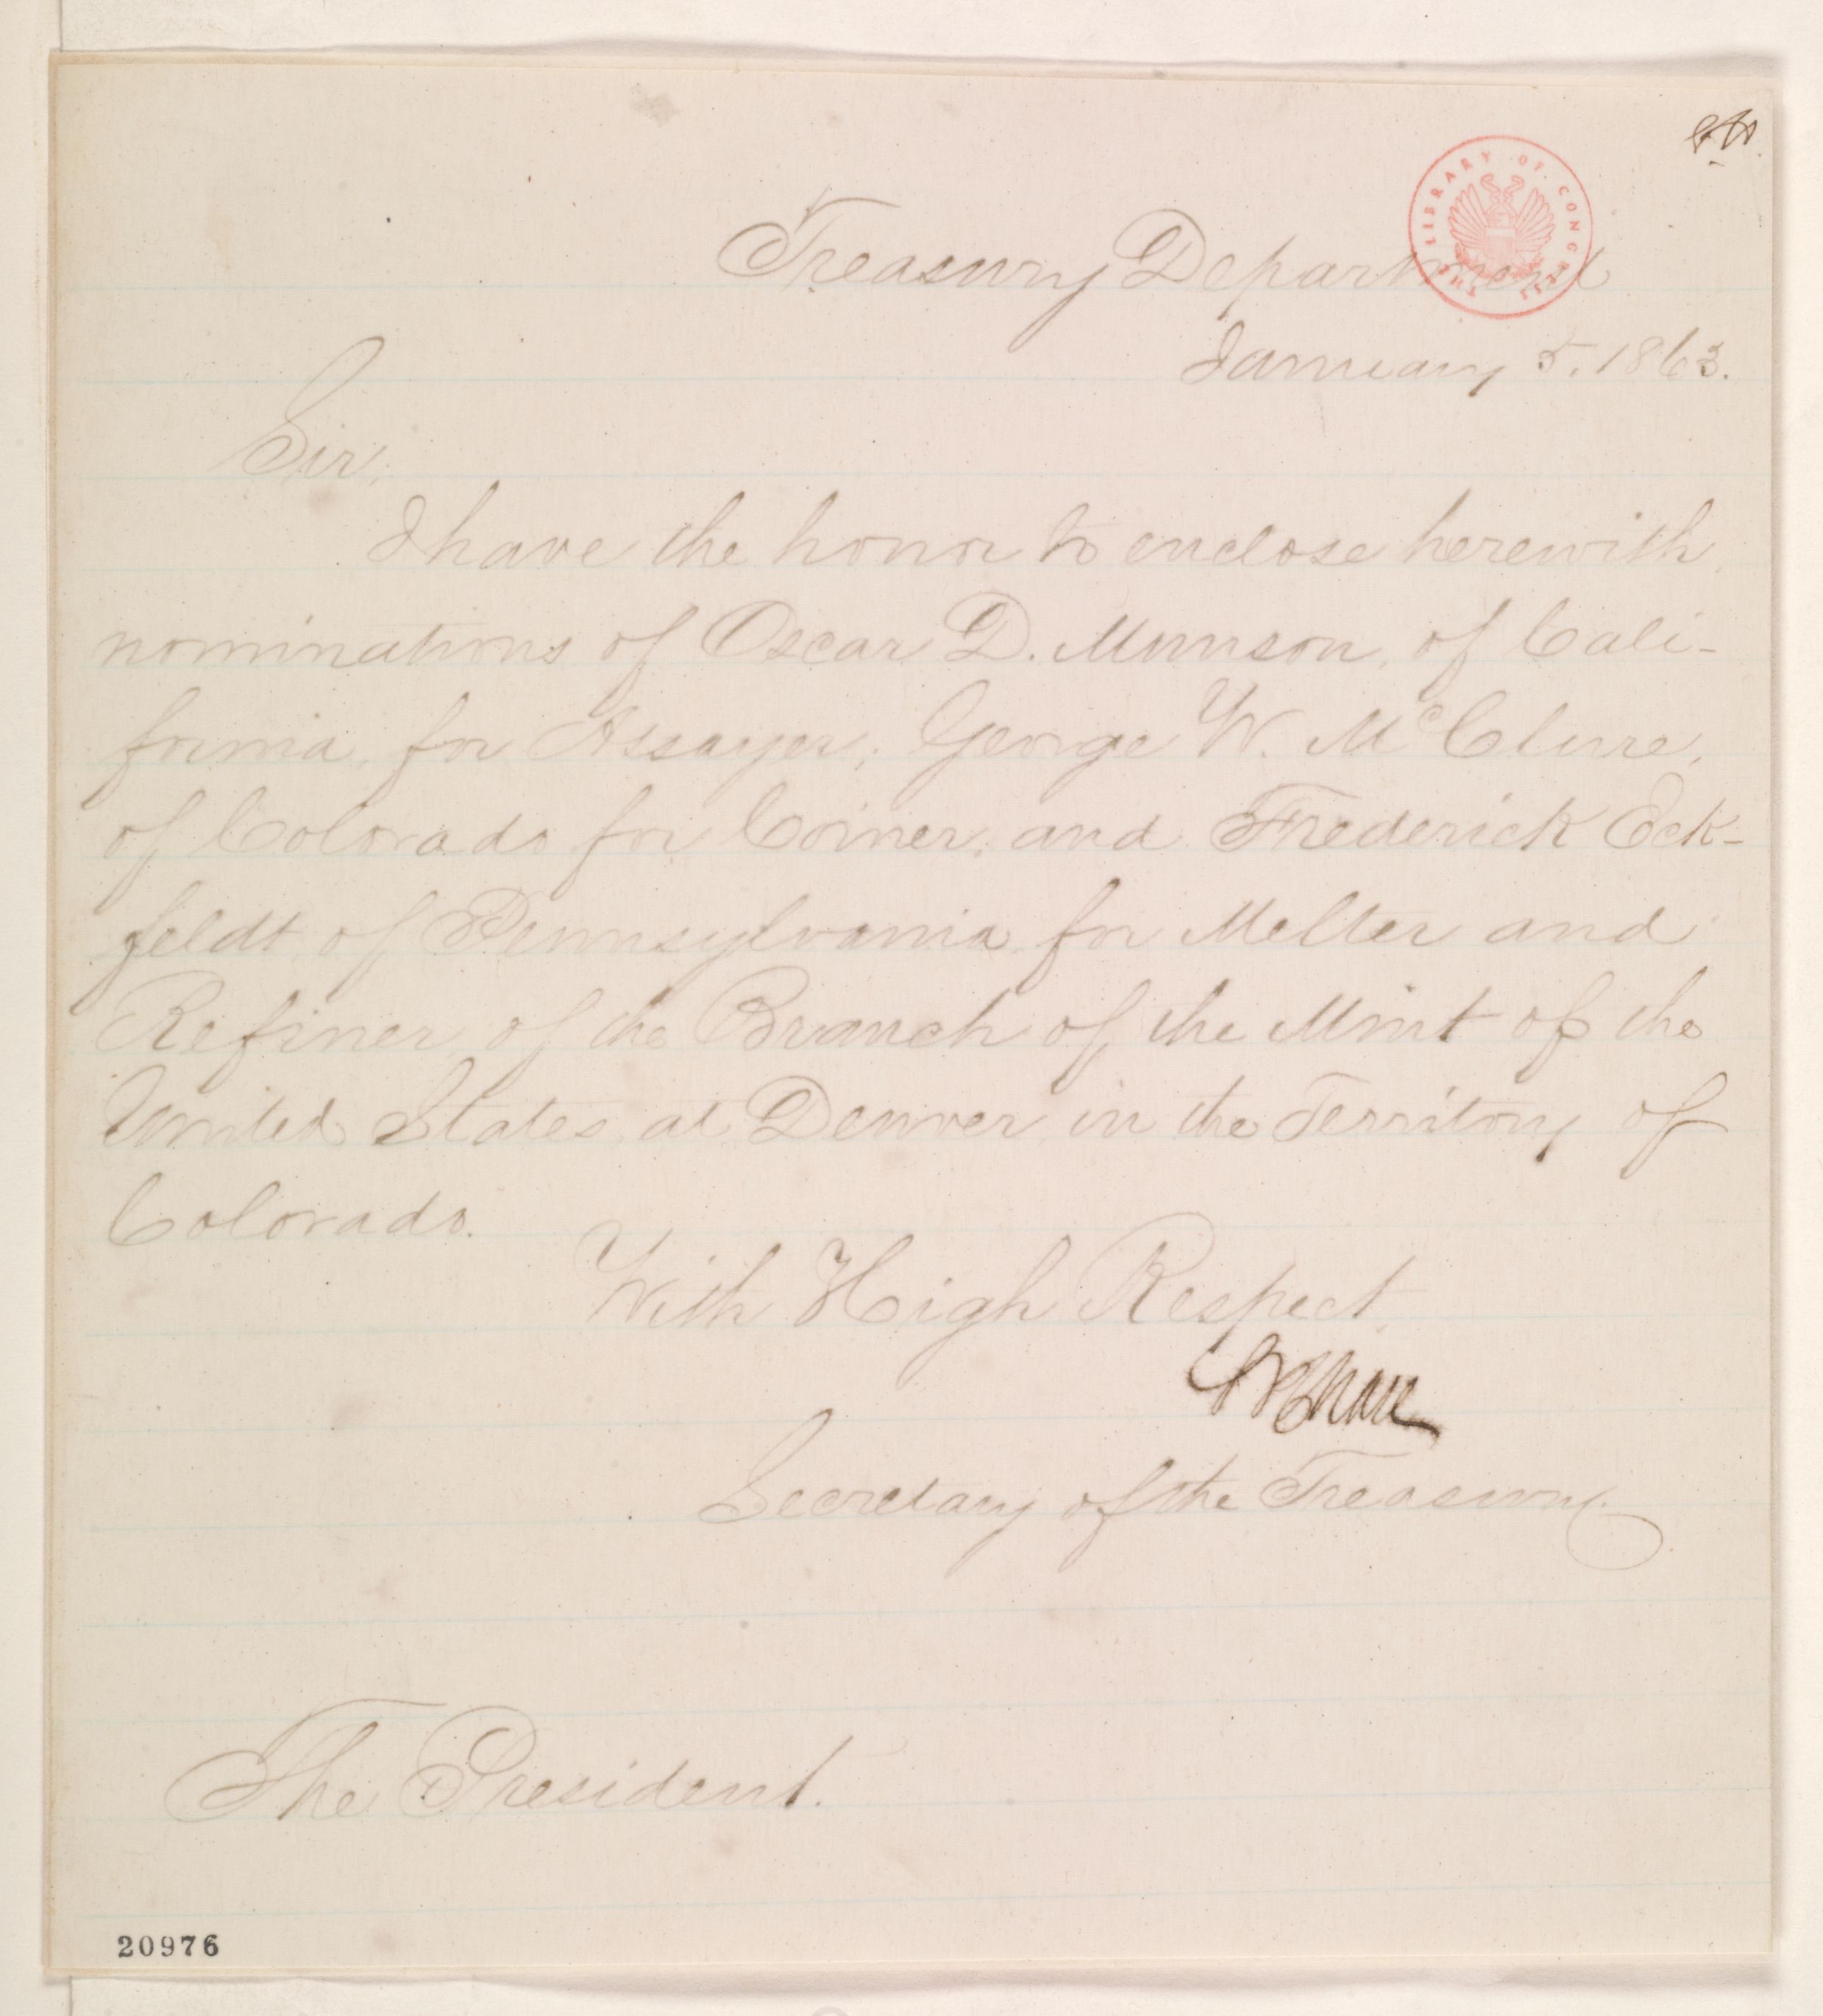 THE LIBRARY OF CONGRESS
Treasury Department
January 5. 1863.
Sir,
I have the honor to enclose herewith
nominations of Oscar D. Munson, of Cali-
fornia, for Assayer; George W. McClure,
of Colorado for Coiner; and Frederick Eck-
feldt of Pennsylvania for Melter and
Refiner, of the Branch of the Mint of the
United States at Denver in the Territory of
Colorado.
With High Respect,
SPChase
Secretary of the Treasury.
The President.
20976